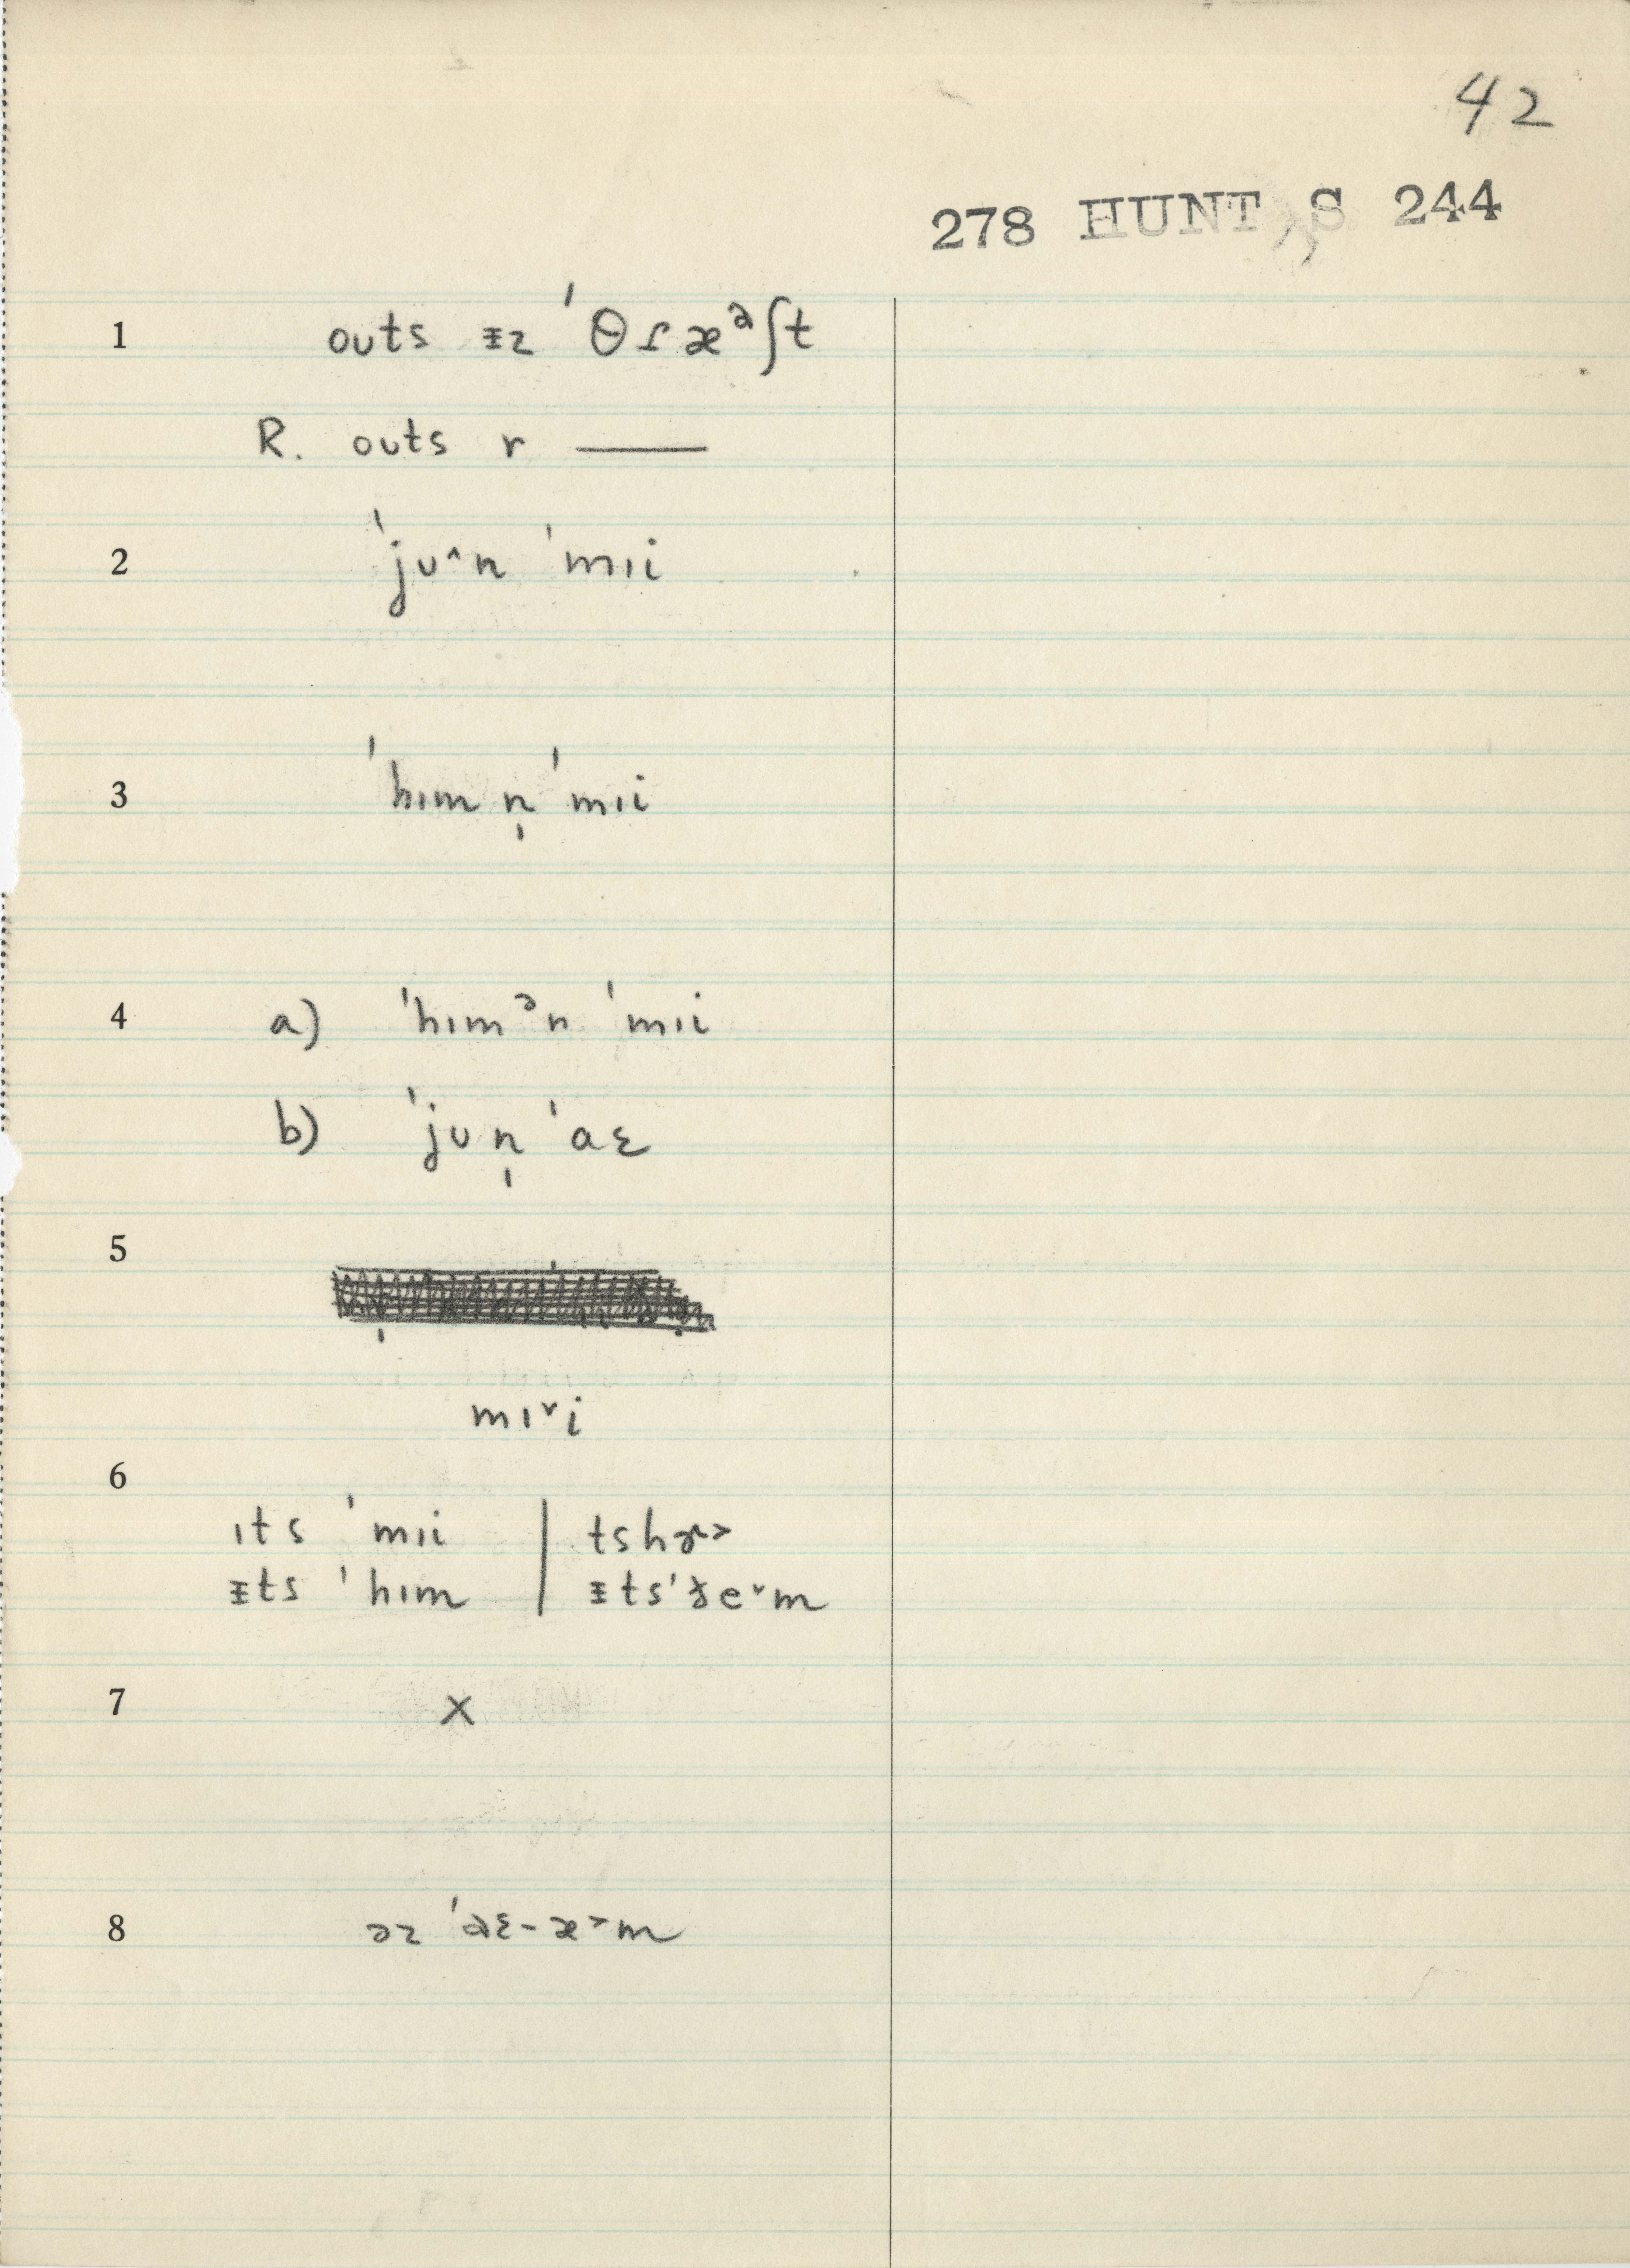 42
278 HUNT, S 244
1 outs ᵻz ˈθɾæᵊʃt
R. outs r ———
2 ˈjʊ^n ˈmɪi
3 ˈhɪm n̩ ˈmɪi
4 a) ˈhɪmᵊn ˈmɪi
b) ˈjʊn̩ ˈaɛ
5
mɪ˅i
6
ɪts ˈmɪi | tshɚ˃
ᵻts ˈhɪm | ᵻtsˈðe˅m
7 x
8 əz ˈaɛ-æ˃m